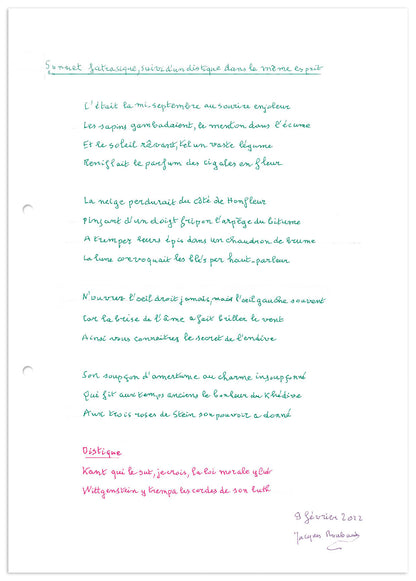 Sonnet fatrasique, suivi d'un distique dans le même esprit
L'était la mi-septembre au sourire enjoleur
Les sapins gambadaient, le menton dans l'écume
Et le soleil rêvant, tel un vaste légume
Reniflait le parfum des cigales en fleur
La neige perdurait du côté de Honfleur
Pinçant d'un doigt fripon l'arpège du bitume
A tremper leurs épis dans un chaudron de brume
La lune convoquait les blés par haut-parleur
N'ouvrez l'oeil droit jamais, mais l'oeil gauche souvent
Car la brise de l'âme a fait briller le vent
Ainsi vous connaitrez le secret de l'endive
Son soupçon d'amertume au charme insoupçonné
Qui fit aux temps anciens le bonheur du Khédive
Aux trois roses de Stein son pouvoir a donné
Distique
Kant qui le sut, je crois, la loi morale y lut
Wittgenstein y trempa les cordes de son luth
9 février 2022
Jacques